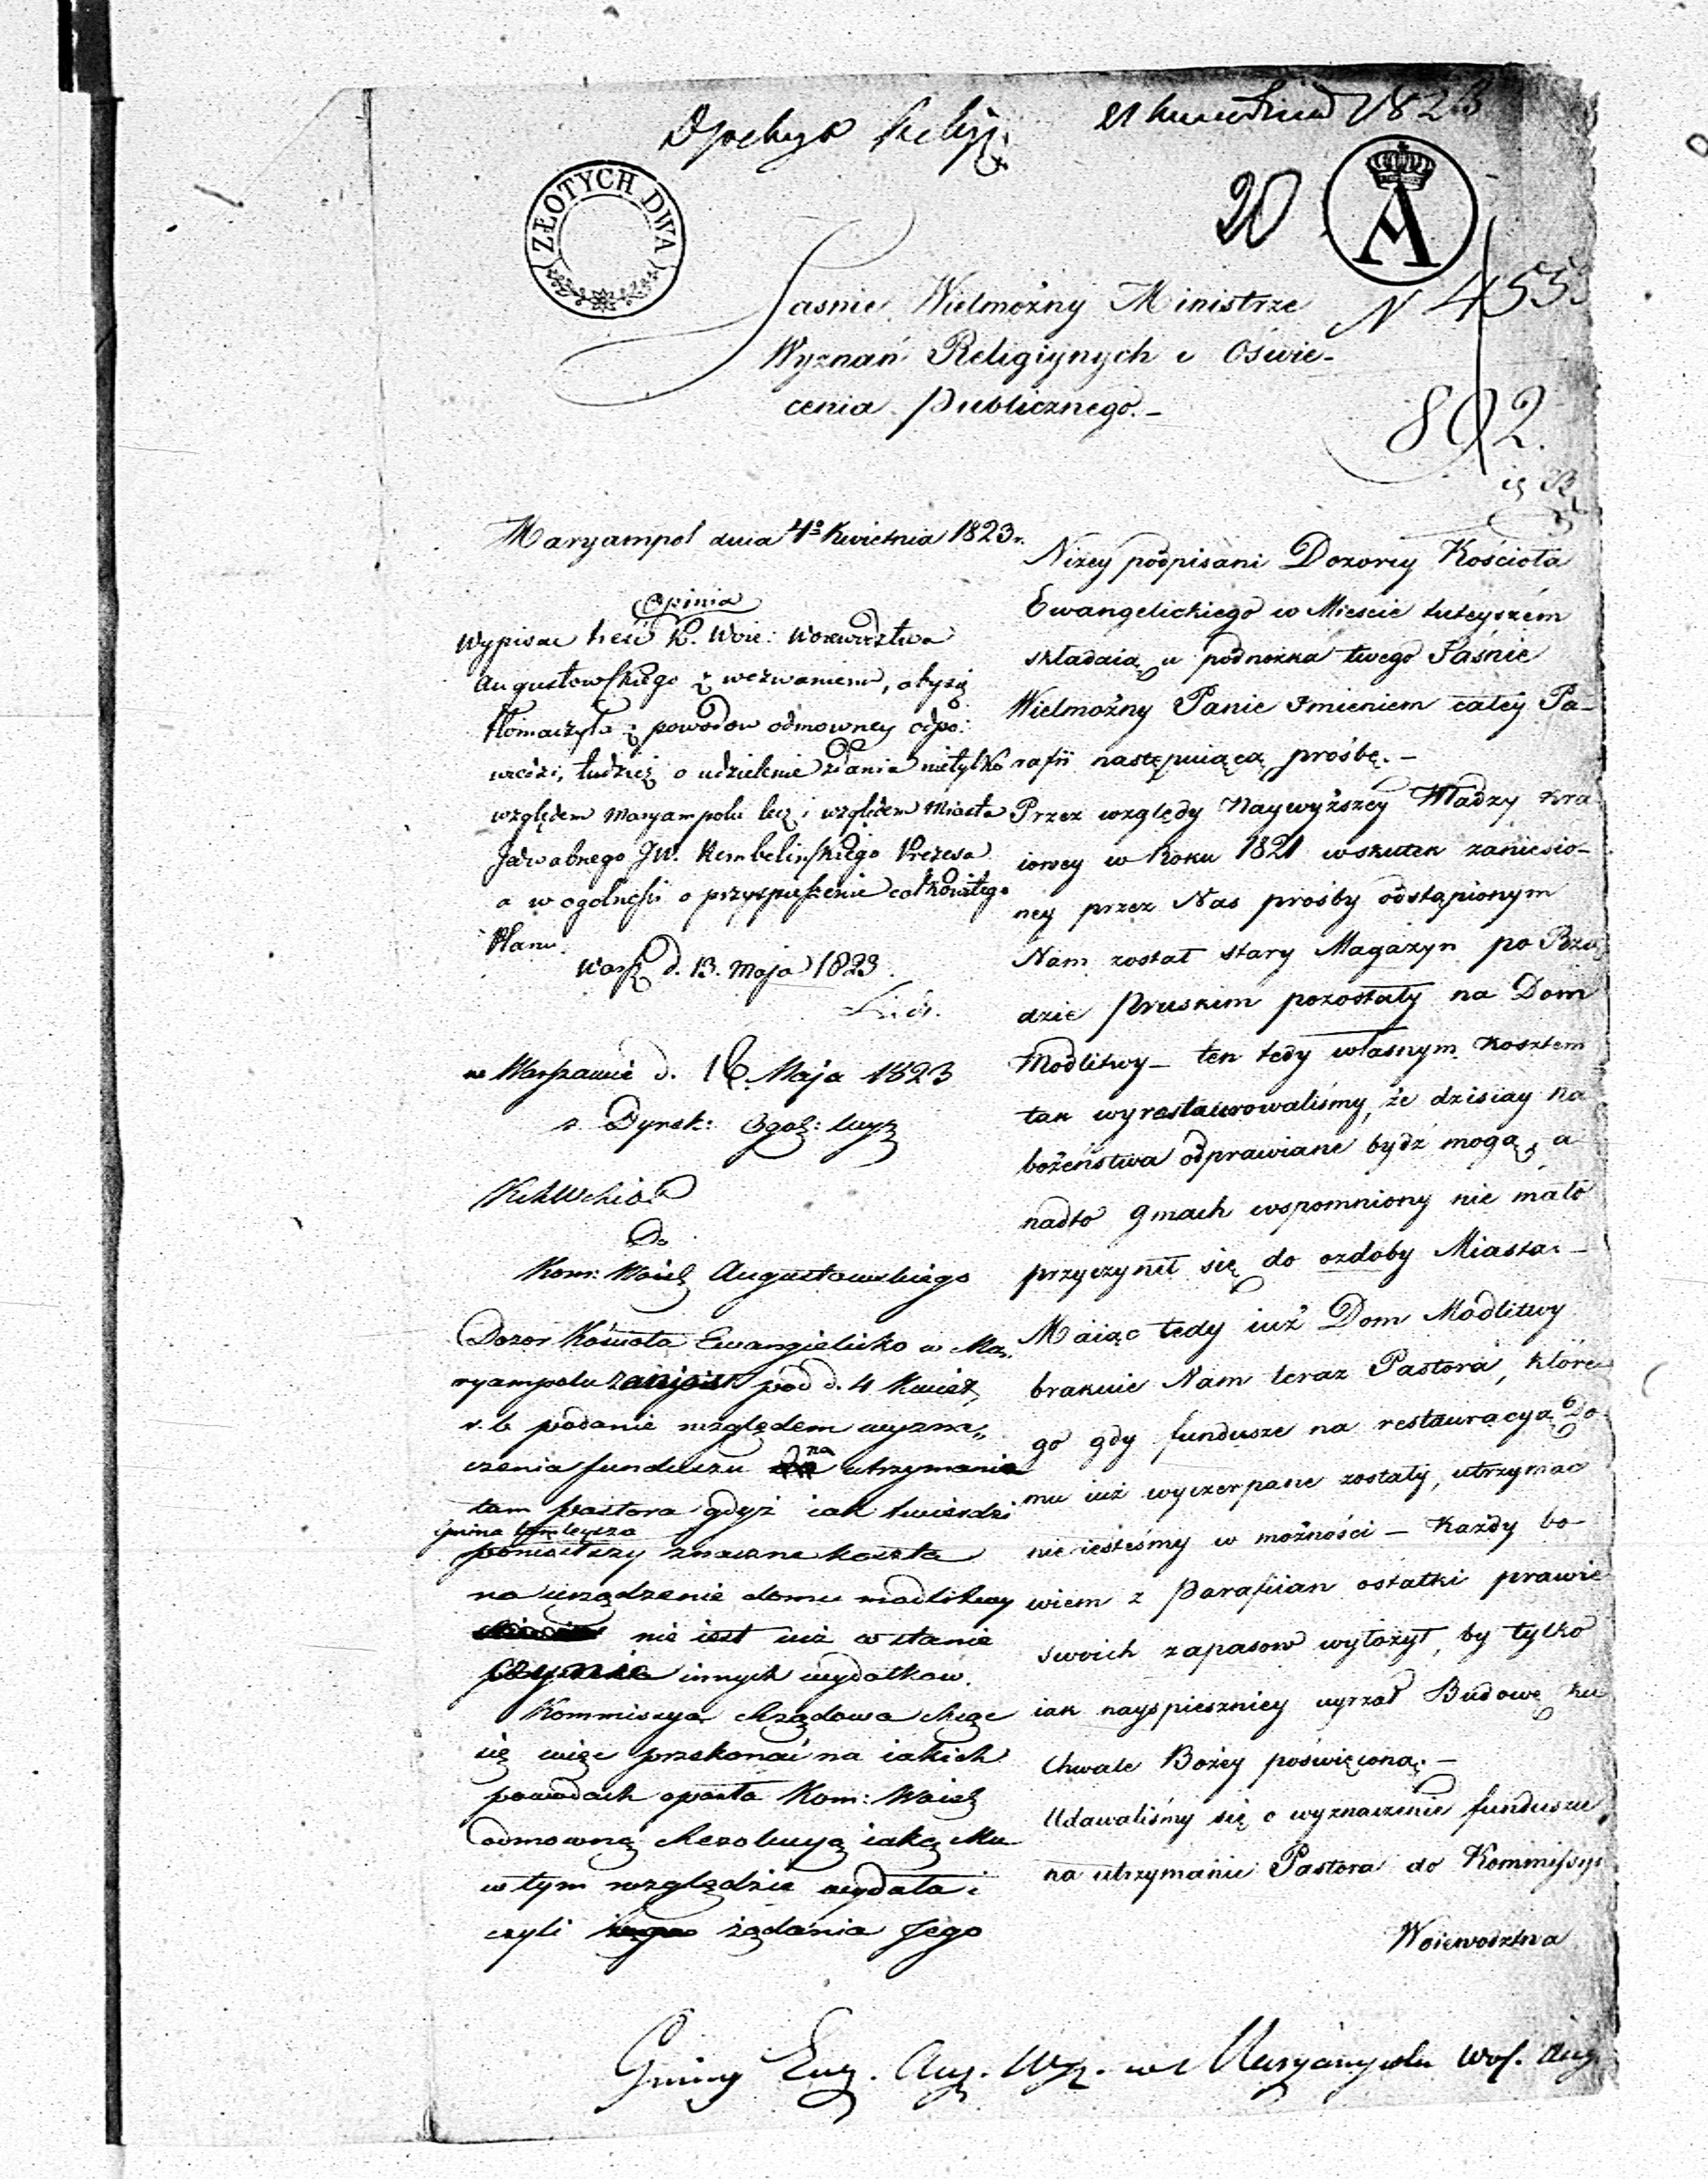 21 Kwietnia 1823
ZŁOTYCH DWA
20
A
N 455
892.
Jasnie Wielmożny Ministrze
Wyznań Religiynych i Oświe-
cenia Publicznego.-
Maryampol dnia 4º Kwietnia 1823 r.
Opinia
Wypisac treść K. Woie: Woiewodztwa
Augustowskiego z wezwaniem, aby się
tłomaczyła z powodow odmowney odpo:
wiedzi, tudzież o udzielenie zdania nietylko
względem Maryampolu lecz i względem Miasta
Jedwabnego JW. Rembelinskiego Prezesa
a w ogolności o przyspieszenie całkowitego
Planu.
Warsz d. 13. Maja 1823.
w Warszawie d. 16. Maja 1823
Do
Kom: Woiew Augustowskiego
Dozor Kościoła Ewangielicko w Ma,
ryampolu pod d. 4 Kwiet,
r. b podanie względem wyzna,,
czenia funduszu na utrzymanie
tam pastora gdyż iak twierdzi
gmina tameysza
znaczne koszta
na urządzenie domu modlitwy
nie iest iuż w stanie
innych wydatkow.
Kommissya Rządowa chcąc
się więc przekonać na iakich
powodach oparła Kom: Woiew
odmowną Rezolucyą iaką Mu
w tym względzie wydała i
czyli żądania Jego
Niżey podpisani Dozorcy Kościoła
Ewangelickiego w Mieście tuteyszém
składaią u podnożka twego Jaśnie
Wielmożny Panie Imieniem całey Pa-
rafii następuiącą prośbę.-
Przez względy Naywyższey Władzy Kra
iowey w Roku 1821 wskutek zaniesio-
ney przez Nas prośby odstąpionym
Nam został stary Magazyn po Rzą
dzie Pruskim pozostały na Dom
Modlitwy- ten tedy własnym kosztem
tak wyrestaurowaliśmy, że dzisiay na
bożeństwa odprawiane bydź mogą, a
nadto gmach wspomniony nie mało
przyczynił się do ozdoby Miasta.-
Maiąc tedy iuż Dom Modlitwy
brakuie Nam teraz Pastora, które
go gdy fundusze na restauracyą Do
mu iuż wyczerpane zostały, utrzymac
nie iesteśmy w możności - Każdy bo-
wiem z Parafiian ostatki prawie
swoich zapasow wyłożył, by tylko
iak nayspieszniey uyrzał Budowę ku
Chwale Bożey poświęconą.-
Udawaliśmy się o wyznaczenie funduszu
na utrzymanie Pastora do Kommissyi
Woiewodztwa
Gminy Ewg. Aug. Wyz. w Maryampolu Woj. Aug